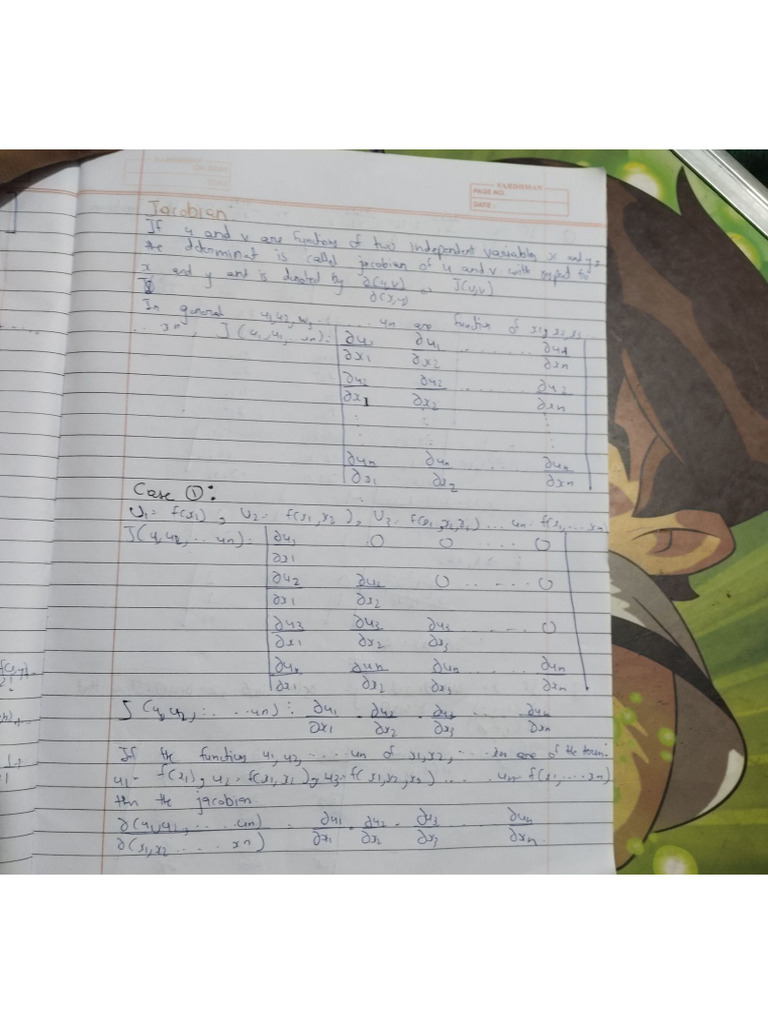 VARDHMAN
PAGE NO.
DATE :
Jacobian
If u and v are functions of two independent variables x and y,
the determinat is called jacobian of u and v with respect to
x and y and is denoted by ∂(u,v)/∂(x,y) or J(u,v)
In general u1,u2,u3 ..... un are function of x1, x2, x3
... xn, J(u1,u1,...xn):
∂u1/∂x1 ∂u1/∂x2 ..... ∂u1/∂xn
∂u2/∂x1 ∂u2/∂x2 ..... ∂u2/∂xn
: : :
: : :
∂un/∂x1 ∂un/∂x2 ..... ∂un/∂xn
Case ①:
U1= f(x1), U2= f(x1,x2), U3= ... un= f(x1,...xn)
J(u,u2,...un):
∂u1/∂x1 0 0 .... 0
∂u2/∂x1 ∂u2/∂x2 0 ..... 0
∂u3/∂x1 ∂u3/∂x2 ∂u3/∂x3 ..... 0
∂un/∂x1 ∂un/∂x2 ∂un/∂x3 ..... ∂un/∂xn
J(u,u2,.....un): ∂u1/∂x1 . ∂u2/∂x2 . ∂u3/∂x3 .... ∂un/∂xn
If the function u1,u2,.....un of x1,x2,...xn are of the
u1= f(x1), u2= f(x1,x2), u3= f(x1,x2,x3) ..... un= f(x1,...xn)
then the jacobian
∂(u1,u2,...un)/∂(x1,x2....xn) = ∂u1/∂x1 . ∂u2/∂x2 . ∂u3/∂x3 ... ∂un/∂xn